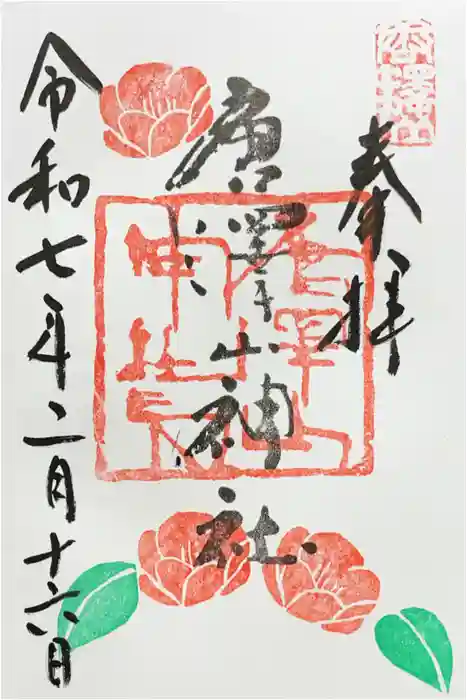 奉拝
唐澤山神社
令和七年二月十六日